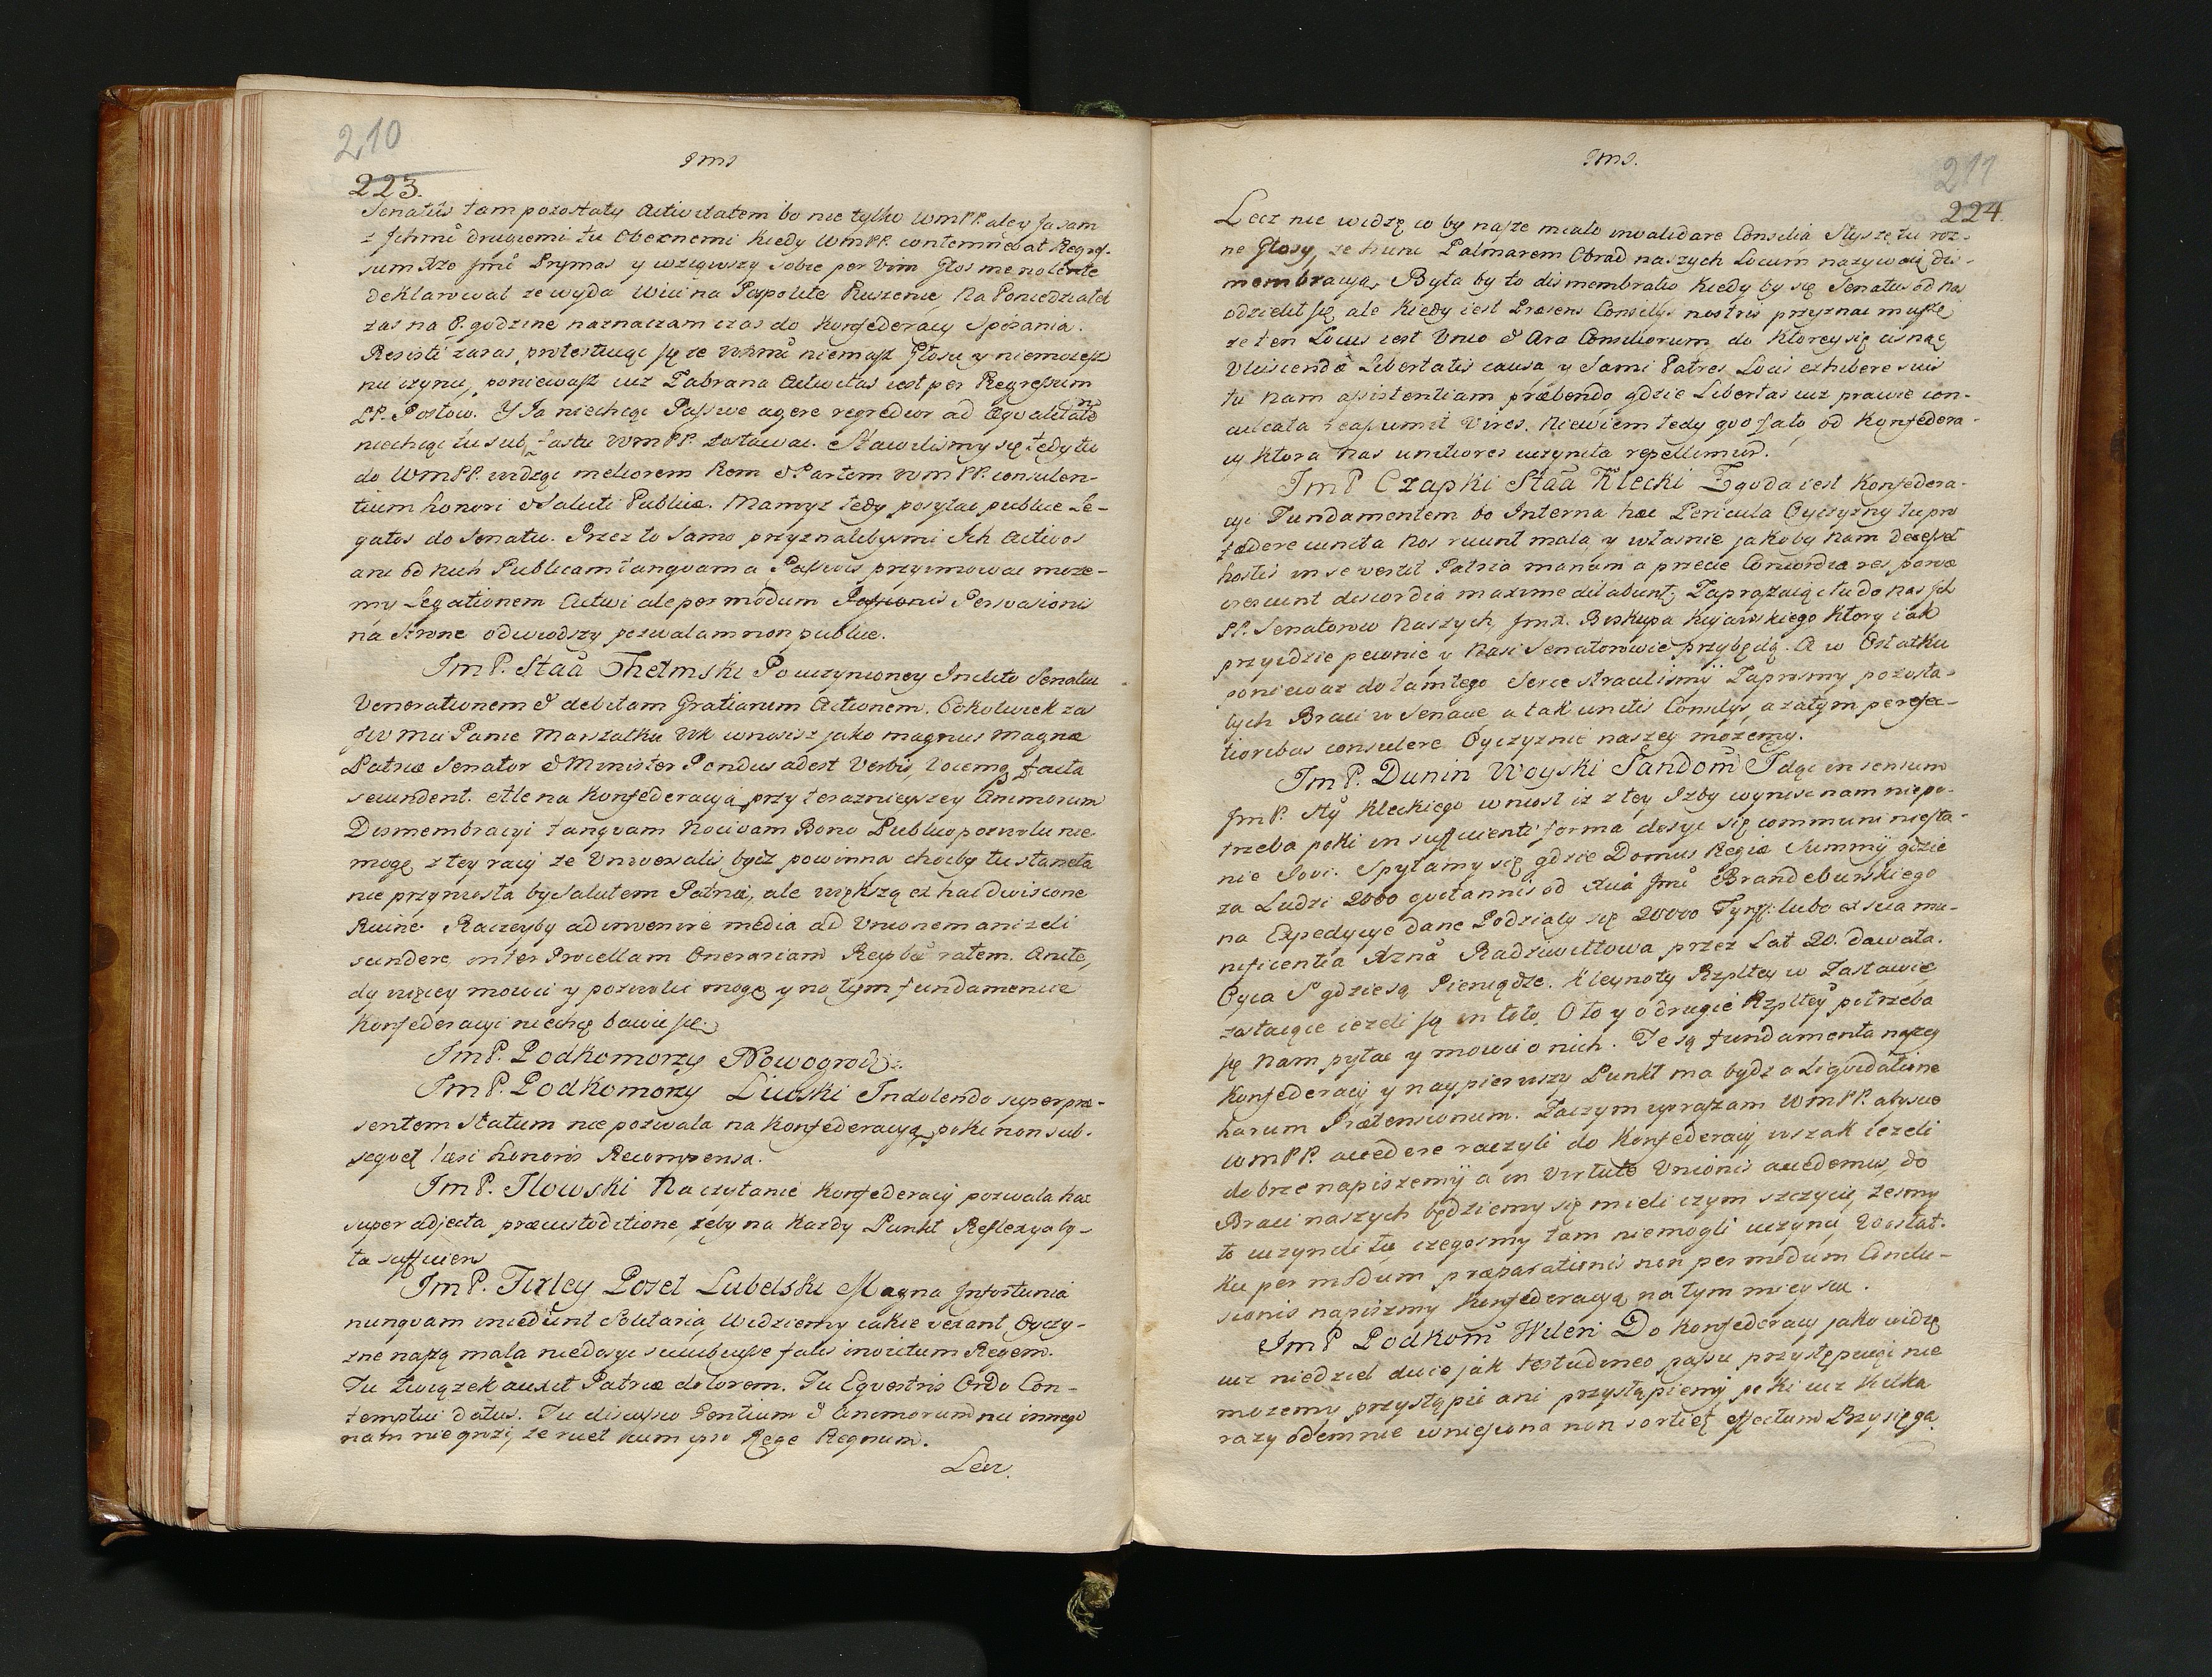 210
Jms
223.
Senatus tam pozostały Activitatem bo nie tylko WmPP. ale y Ja sam
z Jchmć drugiemi tu Obecnemi kiedy WmPP. contemnebat Regres-
sum Xże Jmć Prymas y wziąwszy sobie per vim Głos me nolente
deklarował ze wyda Wici na Pospolite Ruszenie, Na Poniedziałek
zas na 8. godzine naznaczam czas do Konfederacij Spisania.
Resisti zaras, protestuiąc się ze niemasz Głosu y niemozesz
nic czynic, poniewasz iuz Zabrana Activitas iest per Regressum
PP. Posłow. Y Ja niechcąc Passive agere regredior ad Æqvalitatem
niechcąc tu sub fastu WmPP. zostawac. Stawilismy się tedy tu
do WmPP. widząc meliorem Rem & Partem WmPP. consulen-
tium honori & Saluti Publicæ. Mamyz tedy posyłac publice Le-
gatos do Senatu. Przez to samo przyznalibysmi Ich Activos
ani od nich Publicam tanqvam a Passivis przyimowac moze-
my Legationem Activi ale per modum Passionis Persvasionis
na strone odwiodszy pozwalam non publice.
ImP. Staa Chełmski Po uczynioney Inclito Senatui
Venerationem & debitam Gratiarum Actionem. Cokolwiek za
JW Mci Panie Marszałku WK wnosisz jako magnus Magnæ
Patriæ Senator & Minister Pondus adest Verbis, Vocemq facta
secundent. Ale na Konfederacyą przy terazniejszey Animorum
Dismembracyi tanqvam Nocivam Bono Publico pozwolic nie
mogę z tey racij ze Universalis bydz powinna, choćby tu stanęła
nie przyniosła by Salutem Patriæ, ale większą ex hac divisione
Ruinę. Raczeyby adinvenire media ad Unionem anizeli
scindere inter Procellam Onerariam Reipbcæ ratem. Ani te,
dy więcey mowic y pozwolic mogę y na tym fundamencie
Konfederacyi niechcę bawic się.
ImP. Podkomorzy Nowogrodz:
ImP. Podkomorzy Liwski Indolendo super præ-
sentem Statum nie pozwala na Konfederacyą, poki non sub-
seqvet læsi honoris Recompensa.
ImP. Iłowski Na czytanie Konfederacij pozwala hac
super adjecta præcustoditione, zeby na kazdy Punkt Reflexya by-
ła sufficiens
ImP. Firley Poseł Lubelski Magna Infortunia
nunqvam incedunt Solitaria, Widziemy iakie vexant Oyczy-
zne naszą mala niedosyc succubuisse fatis invictum Regem.
Tu Związek auxit Patriæ dolorem. Tu Eqvestris Ordo Con-
temptui datus. Tu discussio Gentium & Animorum nic innego
nam nie grozi, ze ruet cum ipso Rege Regnum.
Lecz.
Jms.
211
224.
Lecz nie widzę co by nasze miało invalidare Consilia Słyszę tu roz-
ne Głosy, ze hunc Palmarem Obrad naszych Locum nazywaią dis-
membracyą. Byłaby to dismembratio kiedy by się Senatus od nas
odzielił się ale kiedy iest Præsens Consilijs nostris przyznac muszę
ze ten Locus iest Unio & Ara Consiliorum, do ktorey się cisnąc
Ulciscendæ Libertatis causa y Sami Patres Locis exhibere suis
tu nam assistentiam præbendo, gdzie Libertas iuz prawie con-
culcata reassumit Vires. Niewiem tedy quo fato, od Konfedera-
cij ktora nas unitiores uczyniła repellimur.
ImP Czapski Staa Klecki Zgoda iest Konfedera-
cyi Fundamentem bo Interna hæc Pericula Oyczyzny tu pro
fœdere cuncta Nos ruunt mala, y własnie jakoby nam deesset
hostis in se vertit Patria manum a przecie Concordia res parvæ
crescunt discordia maxime dilabunt, Zapraszaiąc tu do nas Ich
PP. Senatorow Naszych, JmX. Biskupa Kujawskiego ktory iak
przyidzie pewnie y Nasi Senatorowie przybędą. A w Ostatku
poniewaz do tamtego Serce straciliśmy Zaprosmy pozosta-
łych Braci w Senacie, a tak unitis Consilijs, a zatym perfec-
tioribus consulere Oyczyznie naszey mozemy.
ImP. Dunin Woyski Sandom Idąc in sensum
JmP. Sty Kleckiego wniosł iz z tey Izby wyniść nam niepo-
trzeba poki in sufficienti forma dosyc się communi niesta-
nie Jovi. Spytaimy się gdzie Domus Regiæ Summy gdzie
za Ludzi 2000 qvotannis od Xcia Jmć Brandeburskiego
na Expedycye dane Podziały się 20000 Tynf: lubo ex sua mu-
nificentia Xzna Radziwiłłowa przez Lat 20. dawała.
Oyca S gdzie są Pieniądze. Kleynoty Rzpltey w Zastawie
zostaiące iezeli są in toto. O to y o drugie Rzpltey potrzeba
się nam pytac y mowic o nich. Te są fundamenta naszey
Konfederacij y naypierwszy Punkt ma bydz a Liqvidatione
harum Prætensionum. Zaczym upraszam WmPP. abyscie
WmPP. accedere raczyli do Konfederacij wszak iezeli
dobrze napiszemy a in virtute Unionis accedemus, do
Braci naszych będziemy się mieli czym szczycic, zesmy
to uczynili tu, czegosmy tam niemogli uczynic, W ostat-
ku per modum præparationis non per modum Conclu-
sionis napiszmy Konfederacyą na tym mieyscu.
ImP Podkom Wilen Do Konfederacij jako widzę
iuz niedziel dwie jak testudineo passu przystępuiąc nie
mozemy przystąpic ani przystąpiemy, poki iuz kilka
razy odemnie wniesiona non sortiet effectum Przysięga.